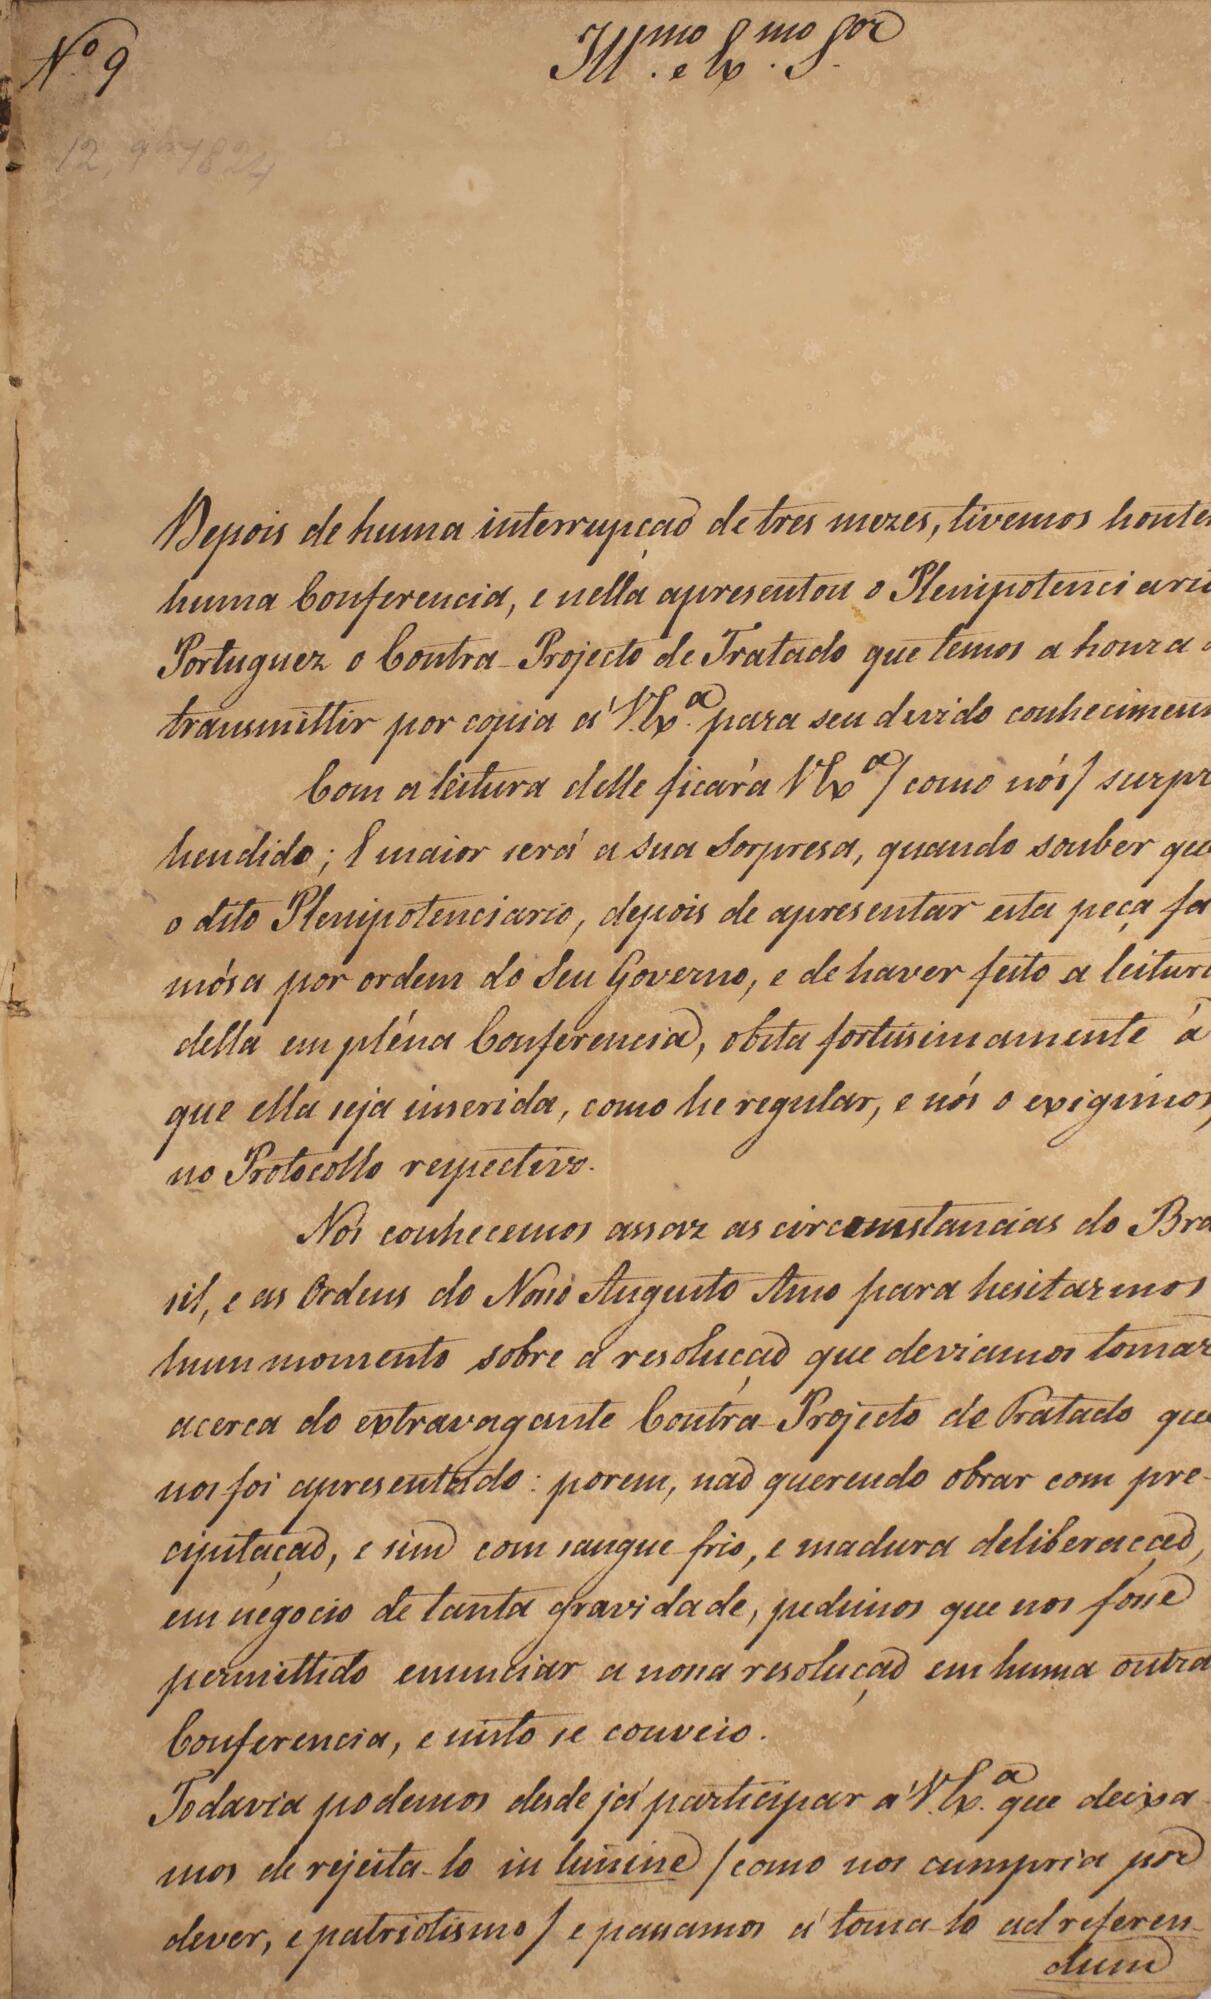 Nº 9
Ill.mo e Ex.mo S.or
12, 9br 1824
Depois de huma interrupçaõ de tres mezes, tivemos honte
huma Conferencia, e nella apresentou o Plenipotenciario
Portuguez o Contra-Projecto de Tratado que temos a honra d
transmittir por copia á V.Ex.a para seu devido conhecimen
Com a leitura delle ficará VEx.a / como nós / surpr
hendido; E maior será a sua Sorpresa, quando souber que
o dito Plenipotenciario, depois de apresentar esta peça fa
mósa por ordem do Seu Governo, e de haver feito a leitura
della em pléna Conferencia, obsta fortissimamente á
que ella seja inserida, como he regular, e nós o exigimos,
no Protocollo respectivo.
Nós conhecemos assaz as circumstancias do Bra
sil, e as Ordens do Nosso Augusto Amo para hesitarmos
hum momento sobre a resoluçaõ que deviamos tomar
acerca do extravagante Contra-Projecto de Tratado que
nos foi apresentado: porem, naõ querendo obrar com pre-
cipitaçaõ, e sim com sangue frio, e madura deliberaçaõ,
em negocio de tanta gravidade, pedimos que nos fosse
permittido enunciar a nossa resoluçaõ em huma outra
Conferencia, e nisto se conveio.
Todavia podemos desde já participar á V.Ex.a que deixa-
mos de rejeita-lo in limine / como nos cumpria por
dever, e patriotismo / e passamos á toma-lo ad referen-
dum